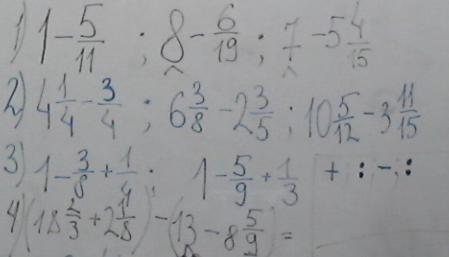 1) 1 - 5/11 ; 8 - 6/19 ; 7 - 5 4/15
2) 4 1/4 - 3/4 ; 6 3/8 - 2 3/5 ; 10 5/12 - 3 11/15
3) 1 - 3/8 + 1/4 ; 1 - 5/9 + 1/3 + : - ; :
4) (18 2/3 + 2 1/8) - (13 - 8 5/9) =